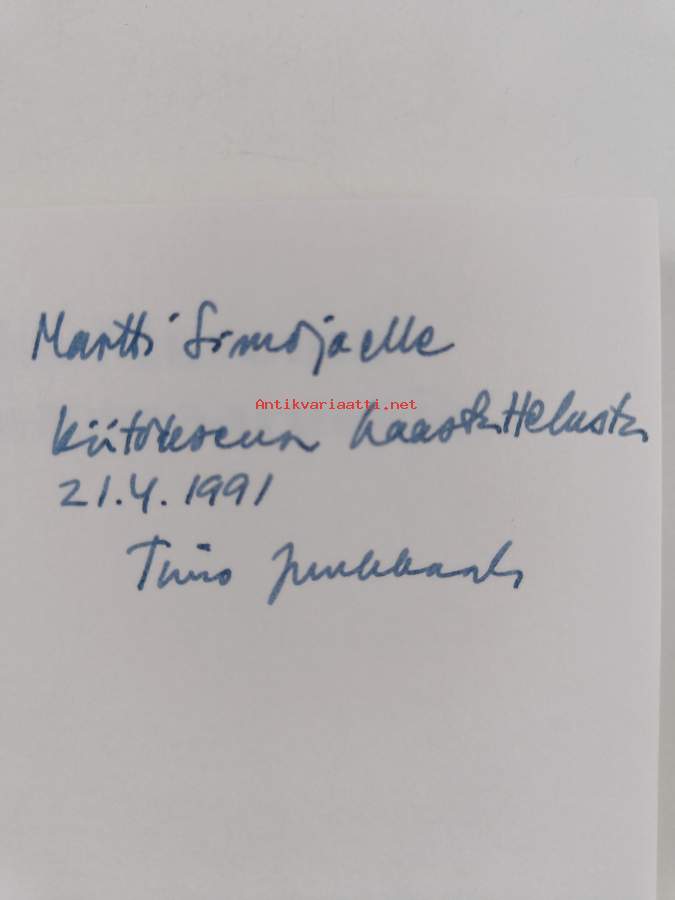 Martti Simojoelle
Antikvariaatti.net
kiitokseksi haastattelusta
21.4.1991
Timo